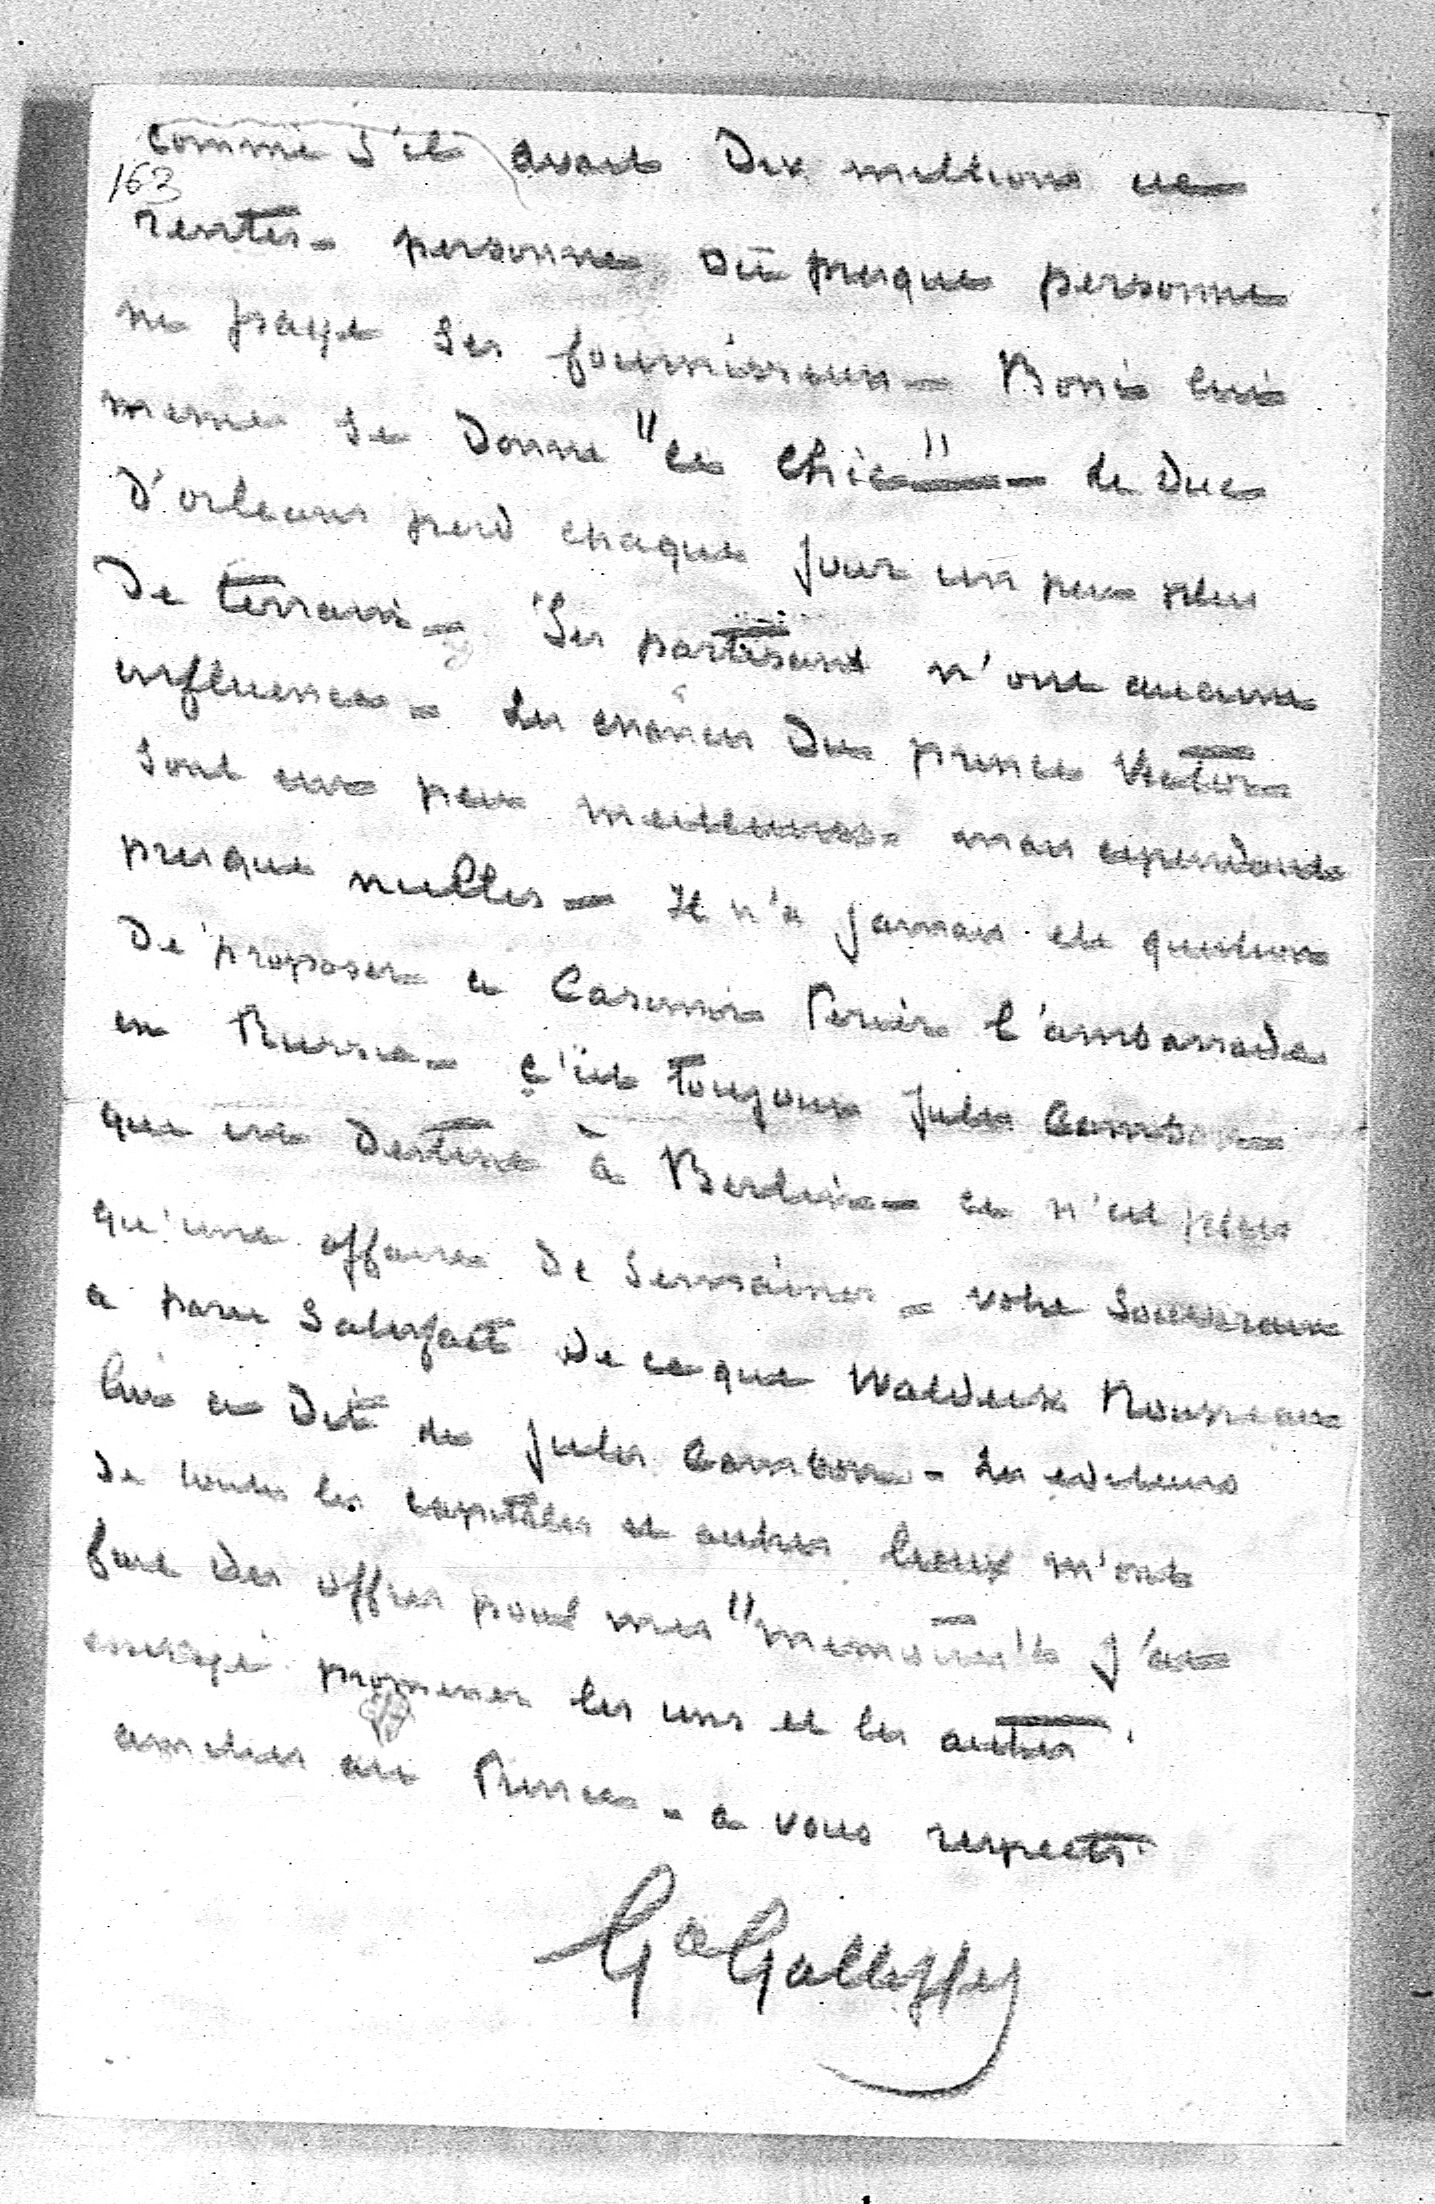 comme s'il avait dix millions de
163
rentes - personne ou presque personne
ne paye ses fournisseurs - Boni lui
meme se donne "ce chic" - le Duc
D'orleans perd chaque jour un peu plus
De terrain - Ses partisans n'ont aucune
influence - les chances Du prince Victor
sont un peu meilleures - mais cependant
presque nulles - Il n'a jamais été question
De proposer a Casimir Perier l'ambassade
en Russie - c'est toujours Jules Cambon
qui est Destiné à Berlin - ce n'est plus
qu'une affaire De semaines - votre Souverain
a paru satisfait De ce que Waldeck Rousseau
lui a Dit de Jules Cambon - les editeurs
De toutes les capitales et autres lieux m'ont
fait Des offres pour mes "memoires" j'ai
envoyé promener les uns et les autres.
amities au Prince - a vous respects.
Gal Galliffet